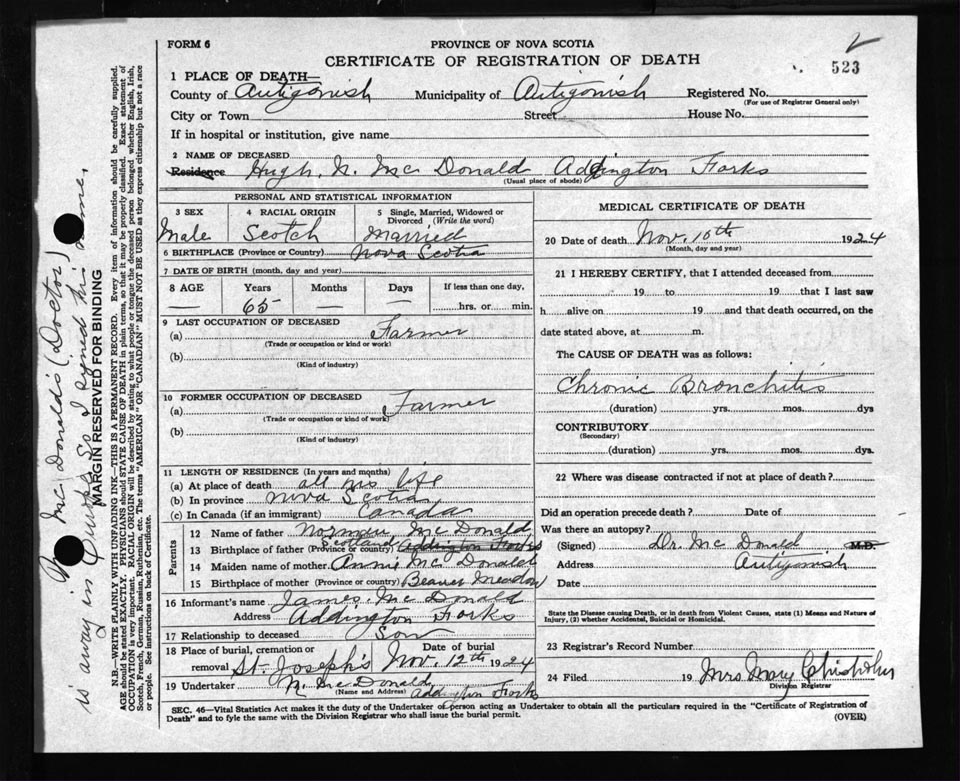 FORM 6
PROVINCE OF NOVA SCOTIA
CERTIFICATE OF REGISTRATION OF DEATH
523
1 PLACE OF DEATH—
County of Antigonish Municipality of Antigonish Registered No.
(For use of Registrar General only)
City or Town Street House No.
If in hospital or institution, give name
2 NAME OF DECEASED
Residence Hugh. N. Mc Donald Addington Forks
(Usual place of abode)
PERSONAL AND STATISTICAL INFORMATION
3 SEX 4 RACIAL ORIGIN 5 Single, Married, Widowed or Divorced (Write the word)
Male Scotch Married
6 BIRTHPLACE (Province or Country) Nova Scotia
7 DATE OF BIRTH (month, day and year)
8 AGE Years Months Days If less than one day,
— 65 — — hrs. or min.
9 LAST OCCUPATION OF DECEASED
(a) Farmer
(Trade or occupation or kind or work)
(b)
(Kind of industry)
10 FORMER OCCUPATION OF DECEASED
(a) Farmer
(Trade or occupation or kind of work)
(b)
(Kind of industry)
11 LENGTH OF RESIDENCE (In years and months)
(a) At place of death all his life
(b) In province Nova Scotia
(c) In Canada (if an immigrant) Canada
Parents
12 Name of father Norman Mc Donald
13 Birthplace of father (Province or country) Scotland Addington Forks
14 Maiden name of mother Annie Mc Donald
15 Birthplace of mother (Province or country) Beaver Meadow
16 Informant's name James. Mc Donald
Address Addington Forks
17 Relationship to deceased Son
18 Place of burial, cremation or removal St. Joseph's Date of burial Nov. 12th 1924
19 Undertaker Mc Donald
(Name and Address) Addington Forks
MEDICAL CERTIFICATE OF DEATH
20 Date of death Nov. 10th 1924
(Month, day and year)
21 I HEREBY CERTIFY, that I attended deceased from
19 to 19 that I last saw
h alive on 19 and that death occurred, on the
date stated above, at m.
The CAUSE OF DEATH was as follows:
Chronic Bronchitis
(duration) yrs. mos. dys
CONTRIBUTORY
(Secondary)
(duration) yrs. mos. dys.
22 Where was disease contracted if not at place of death?
Did an operation precede death? Date of
Was there an autopsy?
(Signed) Dr. Mc Donald M.D.
Address Antigonish
Date
State the Disease causing Death, or in death from Violent Causes, state (1) Means and Nature of
Injury, (2) whether Accidental, Suicidal or Homicidal.
23 Registrar's Record Number
24 Filed 19 Mrs Mary Chisholm
Division Registrar
SEC. 46—Vital Statistics Act makes it the duty of the Undertaker or person acting as Undertaker to obtain all the particulars required in the "Certificate of Registration of
Death" and to fyle the same with the Division Registrar who shall issue the burial permit.
(OVER)
Mc. Donald's (Doctor)
is away in Quebec So I signed his name.
MARGIN RESERVED FOR BINDING
N.B.—WRITE PLAINLY WITH UNFADING INK—THIS IS A PERMANENT RECORD. Every item of information should be carefully supplied.
AGE should be stated EXACTLY. PHYSICIANS should STATE CAUSE OF DEATH in plain terms, so that it may be properly classified. Exact statement of
OCCUPATION is very important. RACIAL ORIGIN will be described by stating to what people or tongue the deceased person belonged whether English, Irish,
Scotch, French, German, Russian, Ruthenian, etc. The terms "AMERICAN" OR "CANADIAN" MUST NOT BE USED as they express citizenship but not a race
or people. See instructions on back of Certificate.